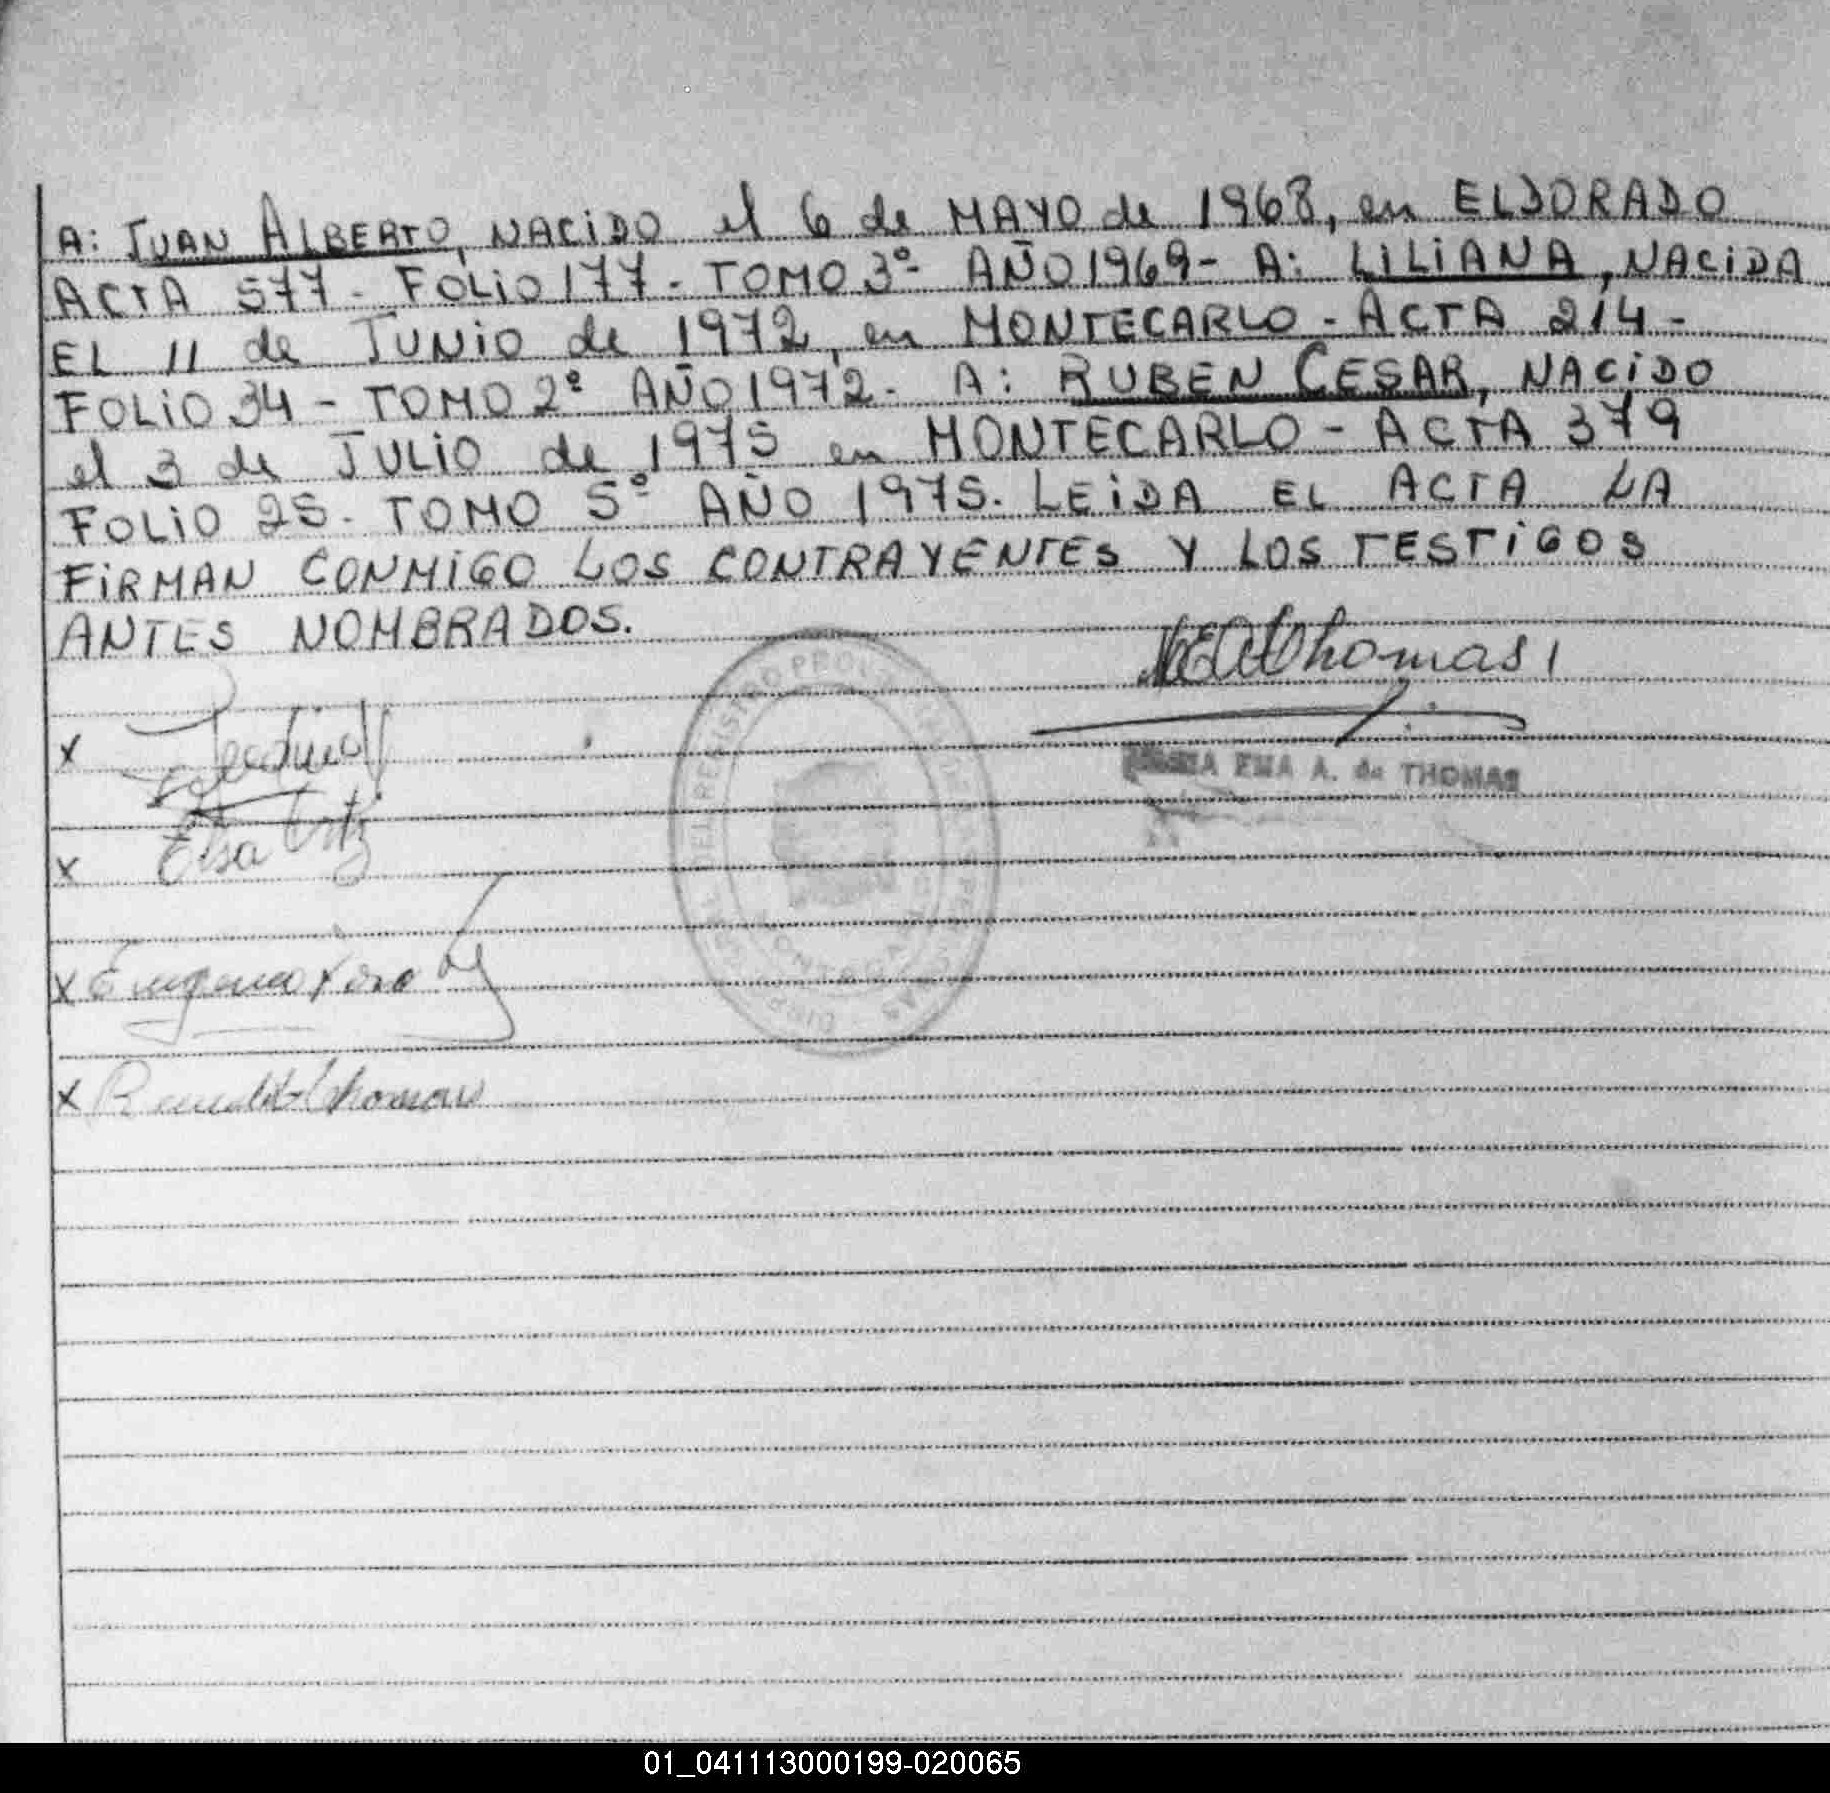 A: JUAN ALBERTO, NACIDO el 6 de MAYO de 1968, en ELDORADO
ACTA 577 - FOLIO 177 - TOMO 3º - AÑO 1969 - A: LILIANA, NACIDA
EL 11 de JUNIO de 1972, en MONTECARLO - ACTA 214 -
FOLIO 34 - TOMO 2º AÑO 1972 - A: RUBEN CESAR, NACIDO
el 3 de JULIO de 1975 en MONTECARLO - ACTA 379
FOLIO 25 - TOMO 5º AÑO 1975. LEIDA EL ACTA LA
FIRMAN CONMIGO LOS CONTRAYENTES Y LOS TESTIGOS
ANTES NOMBRADOS.
Thomas
EMA A. de THOMAS
X
X Elsa
X Eugenio
X Thomas
01_041113000199-020065